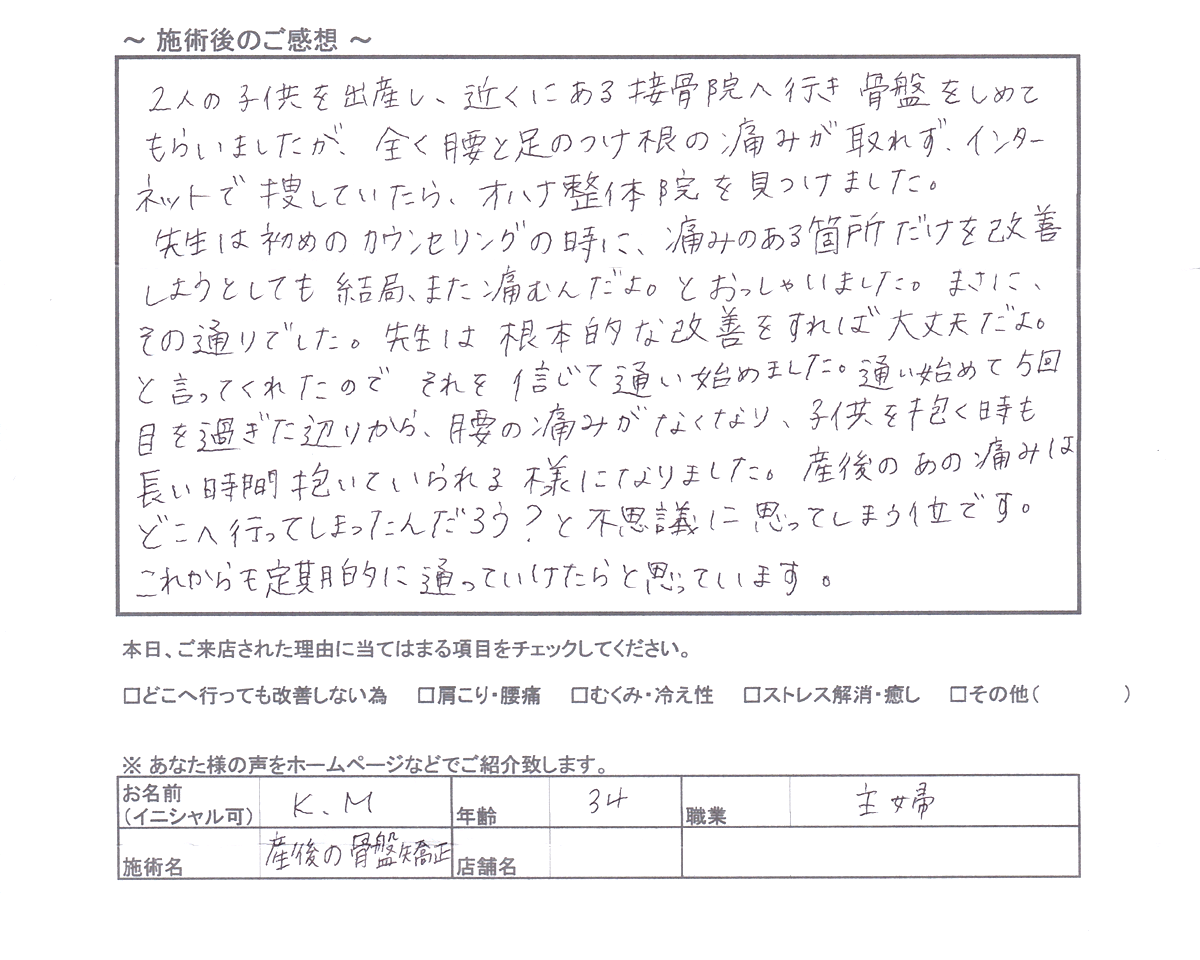 ～ 施術後のご感想 ～
2人の子供を出産し、近くにある接骨院へ行き骨盤をしめて
もらいましたが、全く腰と足のつけ根の痛みが取れず、インター
ネットで捜していたら、オハナ整体院を見つけました。
先生は初めのカウンセリングの時に、痛みのある箇所だけを改善
しようとしても結局、また痛むんだよ。とおっしゃいました。まさに、
その通りでした。先生は根本的な改善をすれば大丈夫だよ。
と言ってくれたのでそれを信じて通い始めました。通い始めて5回
目を過ぎた辺りから、腰の痛みがなくなり、子供を抱く時も
長い時間抱いていられる様になりました。産後のあの痛みは
どこへ行ってしまったんだろう?と不思議に思ってしまう位です。
これからも定期的に通っていけたらと思っています。
本日、ご来店された理由に当てはまる項目をチェックしてください。
□どこへ行っても改善しない為 □肩こり・腰痛 □むくみ・冷え性 □ストレス解消・癒し □その他( )
※ あなた様の声をホームページなどでご紹介致します。
お名前
(イニシャル可) K.M 年齢 34 職業 主婦
施術名 産後の骨盤矯正 店舗名